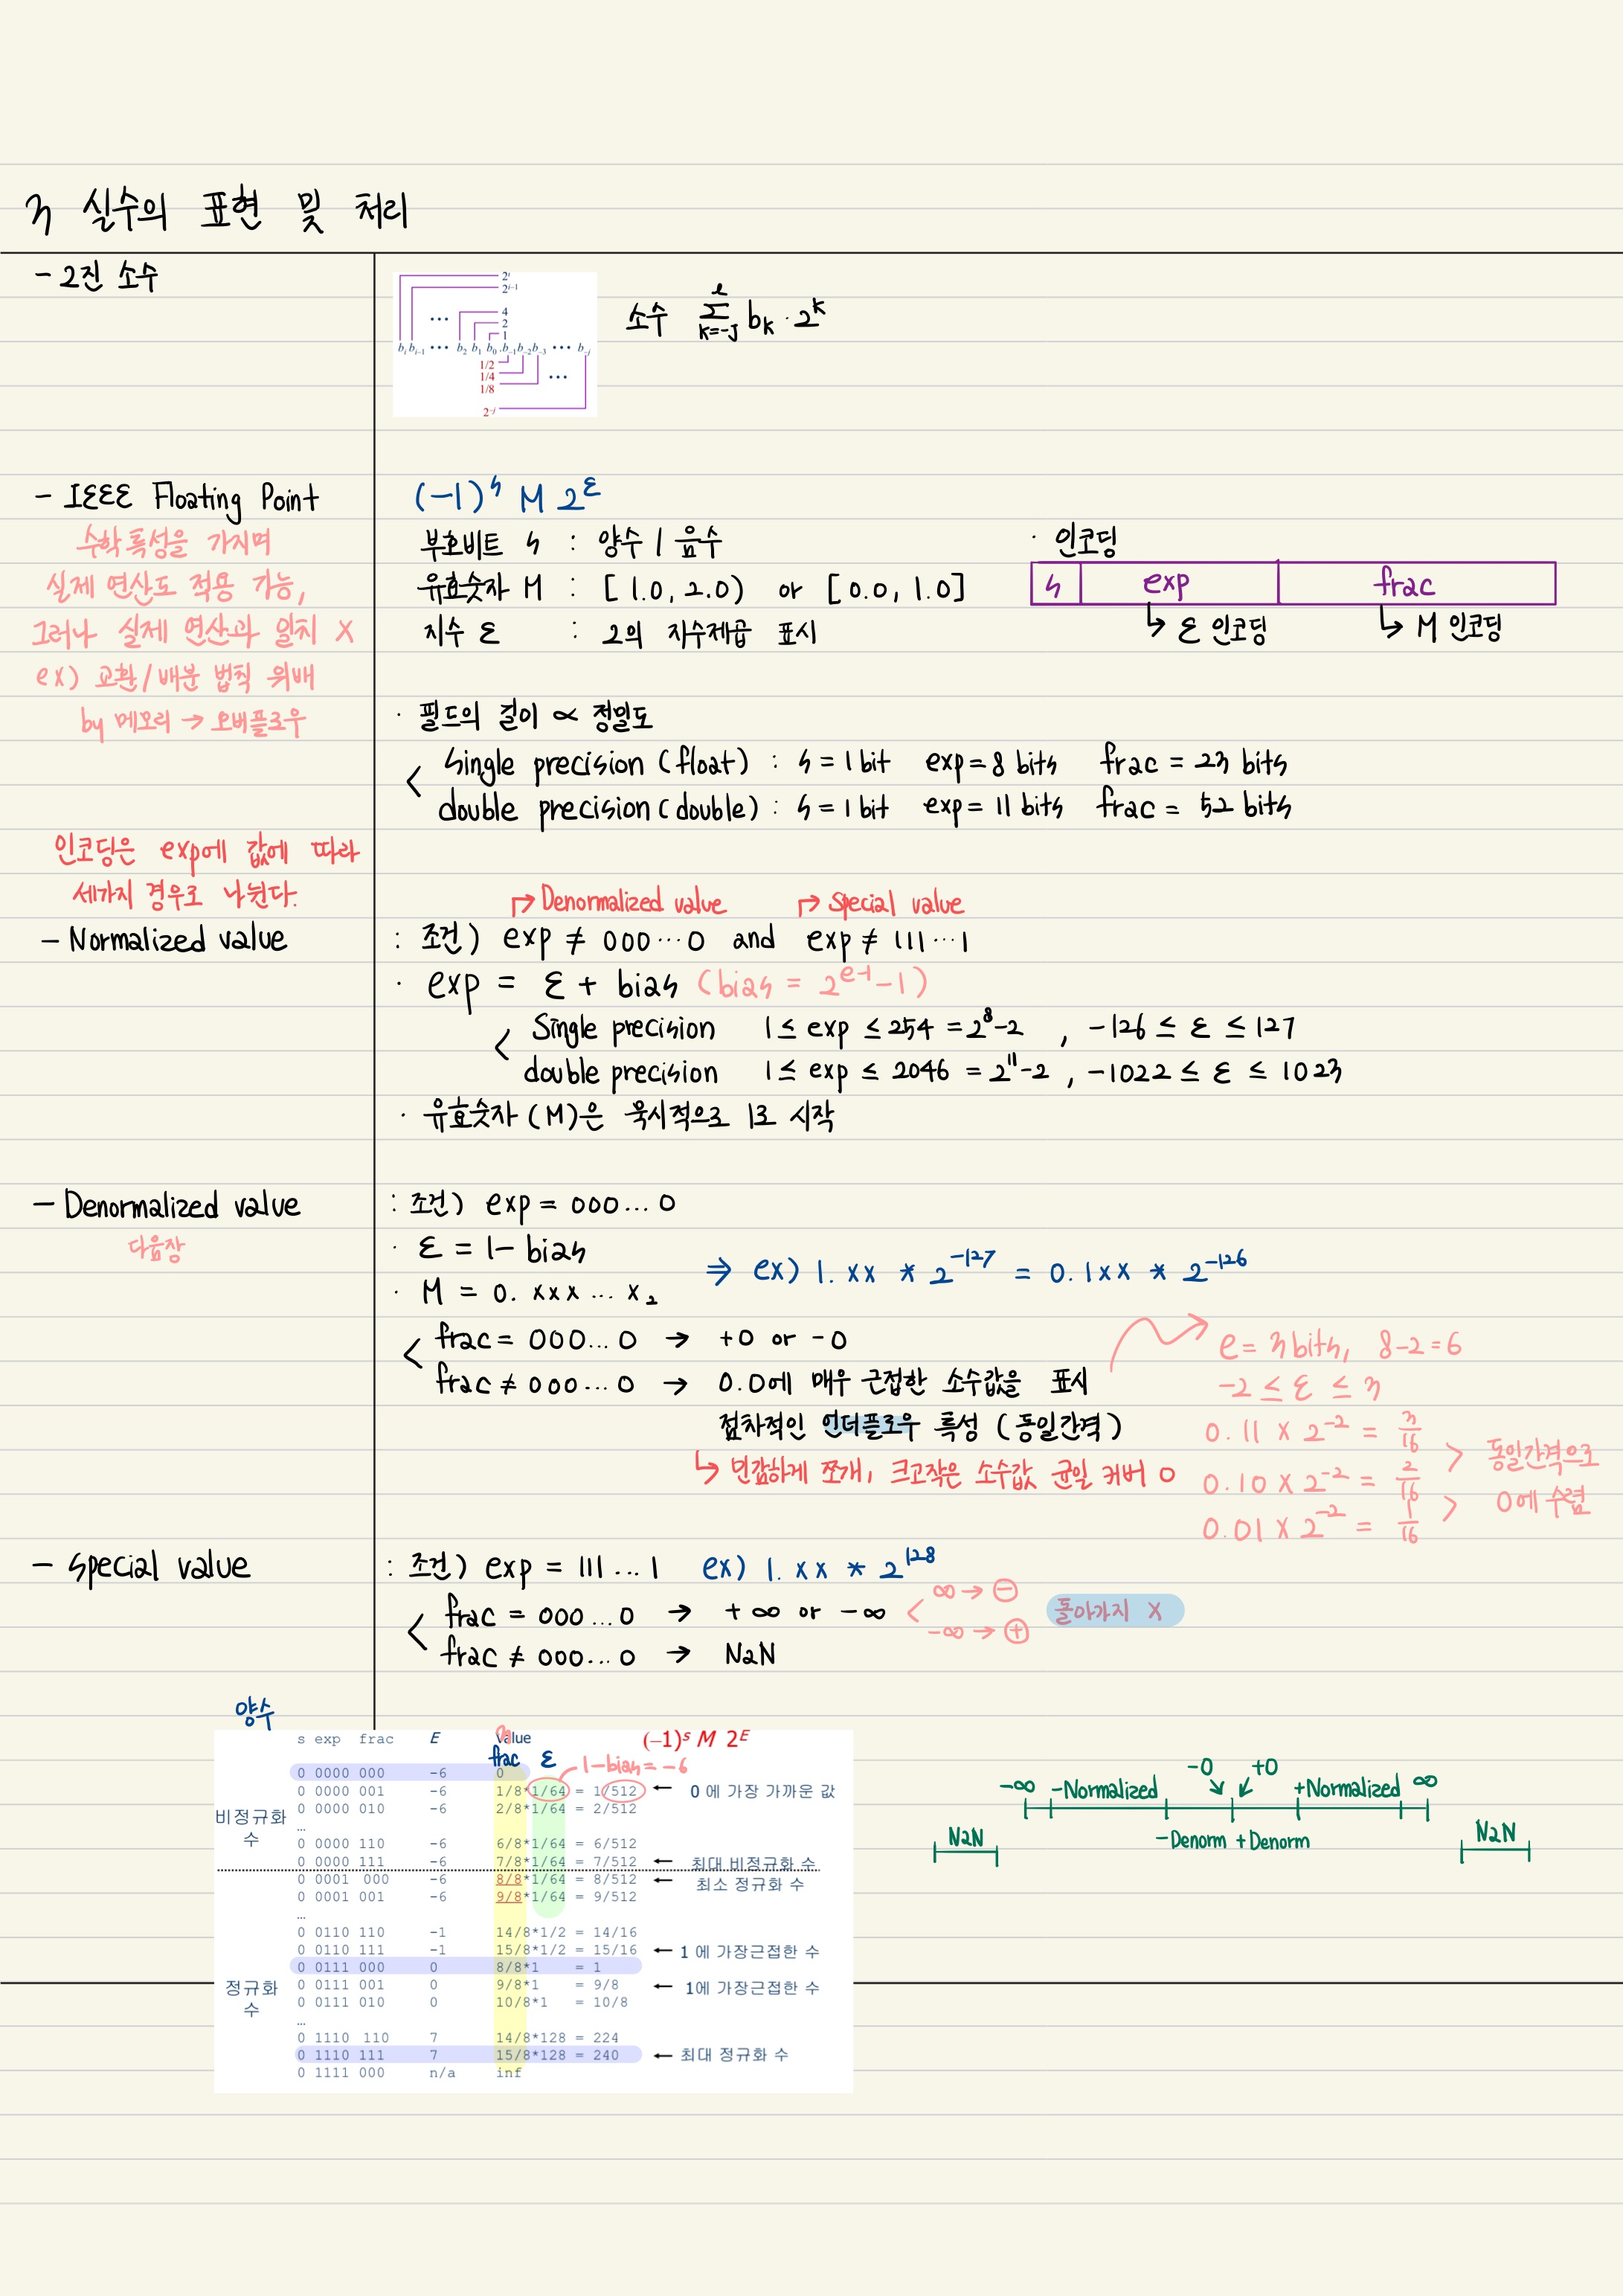 3 실수의 표현 및 처리
- 2진 소수
2^i
2^{i-1}
... 4
2
1
b_i b_{i-1} ... b_2 b_1 b_0 . b_{-1} b_{-2} b_{-3} ... b_{-j}
1/2
1/4 ...
1/8
2^{-j}
소수 Σ_{k=-j}^{i} b_k · 2^k
- IEEE Floating Point
수학 특성을 가지며
실제 연산도 적용 가능,
그러나 실제 연산과 일치 X
ex) 교환/배분 법칙 위배
by 메모리 → 오버플로우
(-1)^s M 2^E
부호비트 s : 양수 / 음수
유효숫자 M : [1.0, 2.0) or [0.0, 1.0]
지수 E : 2의 지수제곱 표시
· 인코딩
s exp frac
↳ E 인코딩 ↳ M 인코딩
· 필드의 길이 ∝ 정밀도
< single precision (float) : s = 1 bit exp = 8 bits frac = 23 bits
double precision (double) : s = 1 bit exp = 11 bits frac = 52 bits
인코딩은 exp에 값에 따라
세가지 경우로 나뉜다.
↱ Denormalized value ↱ Special value
- Normalized value : 조건) exp ≠ 000...0 and exp ≠ 111...1
· exp = E + bias (bias = 2^{e-1} - 1)
< Single precision 1 ≤ exp ≤ 254 = 2^8-2 , -126 ≤ E ≤ 127
double precision 1 ≤ exp ≤ 2046 = 2^11-2 , -1022 ≤ E ≤ 1023
· 유효숫자 (M)은 묵시적으로 1로 시작
- Denormalized value : 조건) exp = 000...0
다음장
· E = 1 - bias
· M = 0.xxx...x_2
⇒ ex) 1.xx * 2^{-127} = 0.1xx * 2^{-126}
< frac = 000...0 → +0 or -0
frac ≠ 000...0 → 0.0에 매우 근접한 소수값을 표시
점차적인 언더플로우 특성 (동일간격)
↳ 민감하게 쪼개, 크고작은 소수값 균일 커버 O
e = 3 bits, 8-2 = 6
-2 ≤ E ≤ 3
0.11 x 2^{-2} = 3/16
0.10 x 2^{-2} = 2/16
0.01 x 2^{-2} = 1/16
> 동일간격으로
> 0에 수렴
- special value : 조건) exp = 111...1 ex) 1.xx * 2^128
< frac = 000...0 → +∞ or -∞ < ∞ → ⊖
-∞ → ⊕
돌아가지 X
frac ≠ 000...0 → NaN
양수
s exp frac E Value (-1)^s M 2^E
frac E 1-bias = -6
0 0000 000 -6 0
0 0000 001 -6 1/8*1/64 = 1/512 ← 0 에 가장 가까운 값
0 0000 010 -6 2/8*1/64 = 2/512
비정규화 수
...
0 0000 110 -6 6/8*1/64 = 6/512
0 0000 111 -6 7/8*1/64 = 7/512 ← 최대 비정규화 수
0 0001 000 -6 8/8*1/64 = 8/512 ← 최소 정규화 수
0 0001 001 -6 9/8*1/64 = 9/512
...
0 0110 110 -1 14/8*1/2 = 14/16
0 0110 111 -1 15/8*1/2 = 15/16 ← 1 에 가장근접한 수
0 0111 000 0 8/8*1 = 1
0 0111 001 0 9/8*1 = 9/8 ← 1에 가장근접한 수
0 0111 010 0 10/8*1 = 10/8
정규화 수
...
0 1110 110 7 14/8*128 = 224
0 1110 111 7 15/8*128 = 240 ← 최대 정규화 수
0 1111 000 n/a inf
-0 +0
-∞ -Normalized +Normalized ∞
NaN -Denorm +Denorm NaN